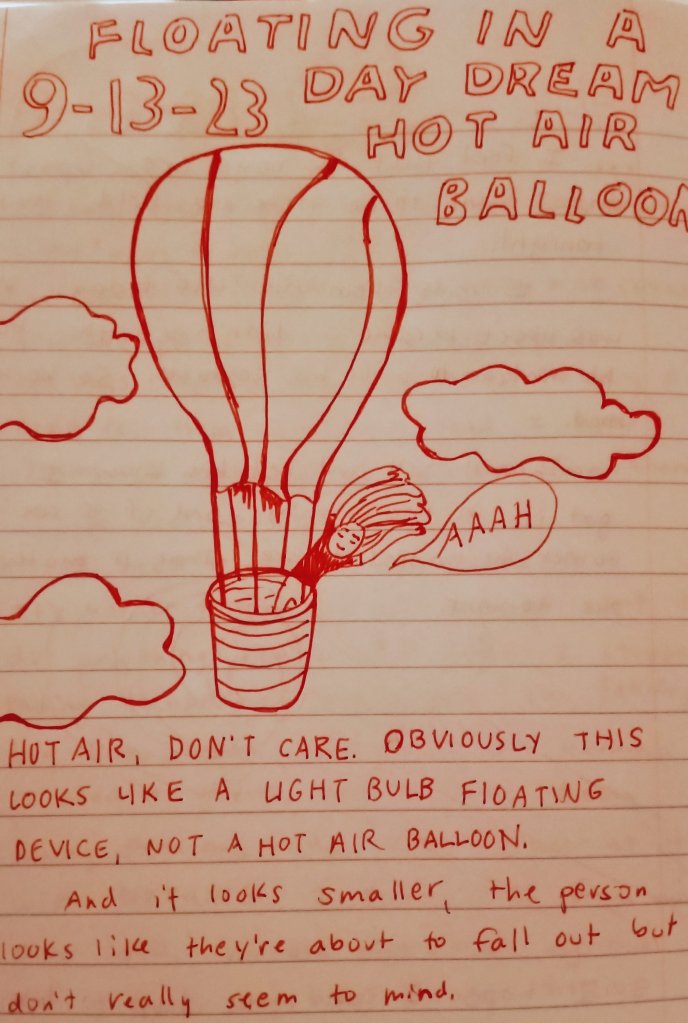 FLOATING IN A
9-13-23 DAY DREAM
HOT AIR
BALLOON
AAAH
HOT AIR, DON'T CARE. OBVIOUSLY THIS
LOOKS LIKE A LIGHT BULB FLOATING
DEVICE, NOT A HOT AIR BALLOON.
And it looks smaller, the person
looks like they're about to fall out but
don't really seem to mind.